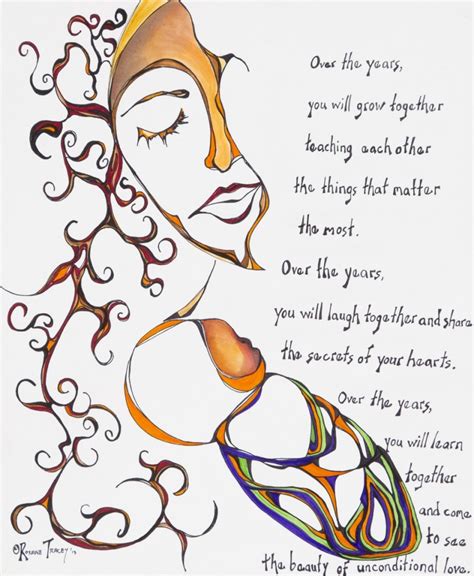 Over the years,
you will grow together
teaching each other
the things that matter
the most.
Over the years,
you will laugh together and share
the secrets of your hearts.
Over the years,
you will learn
together
and come
to see
the beauty of unconditional love.
© Roxane Tracey